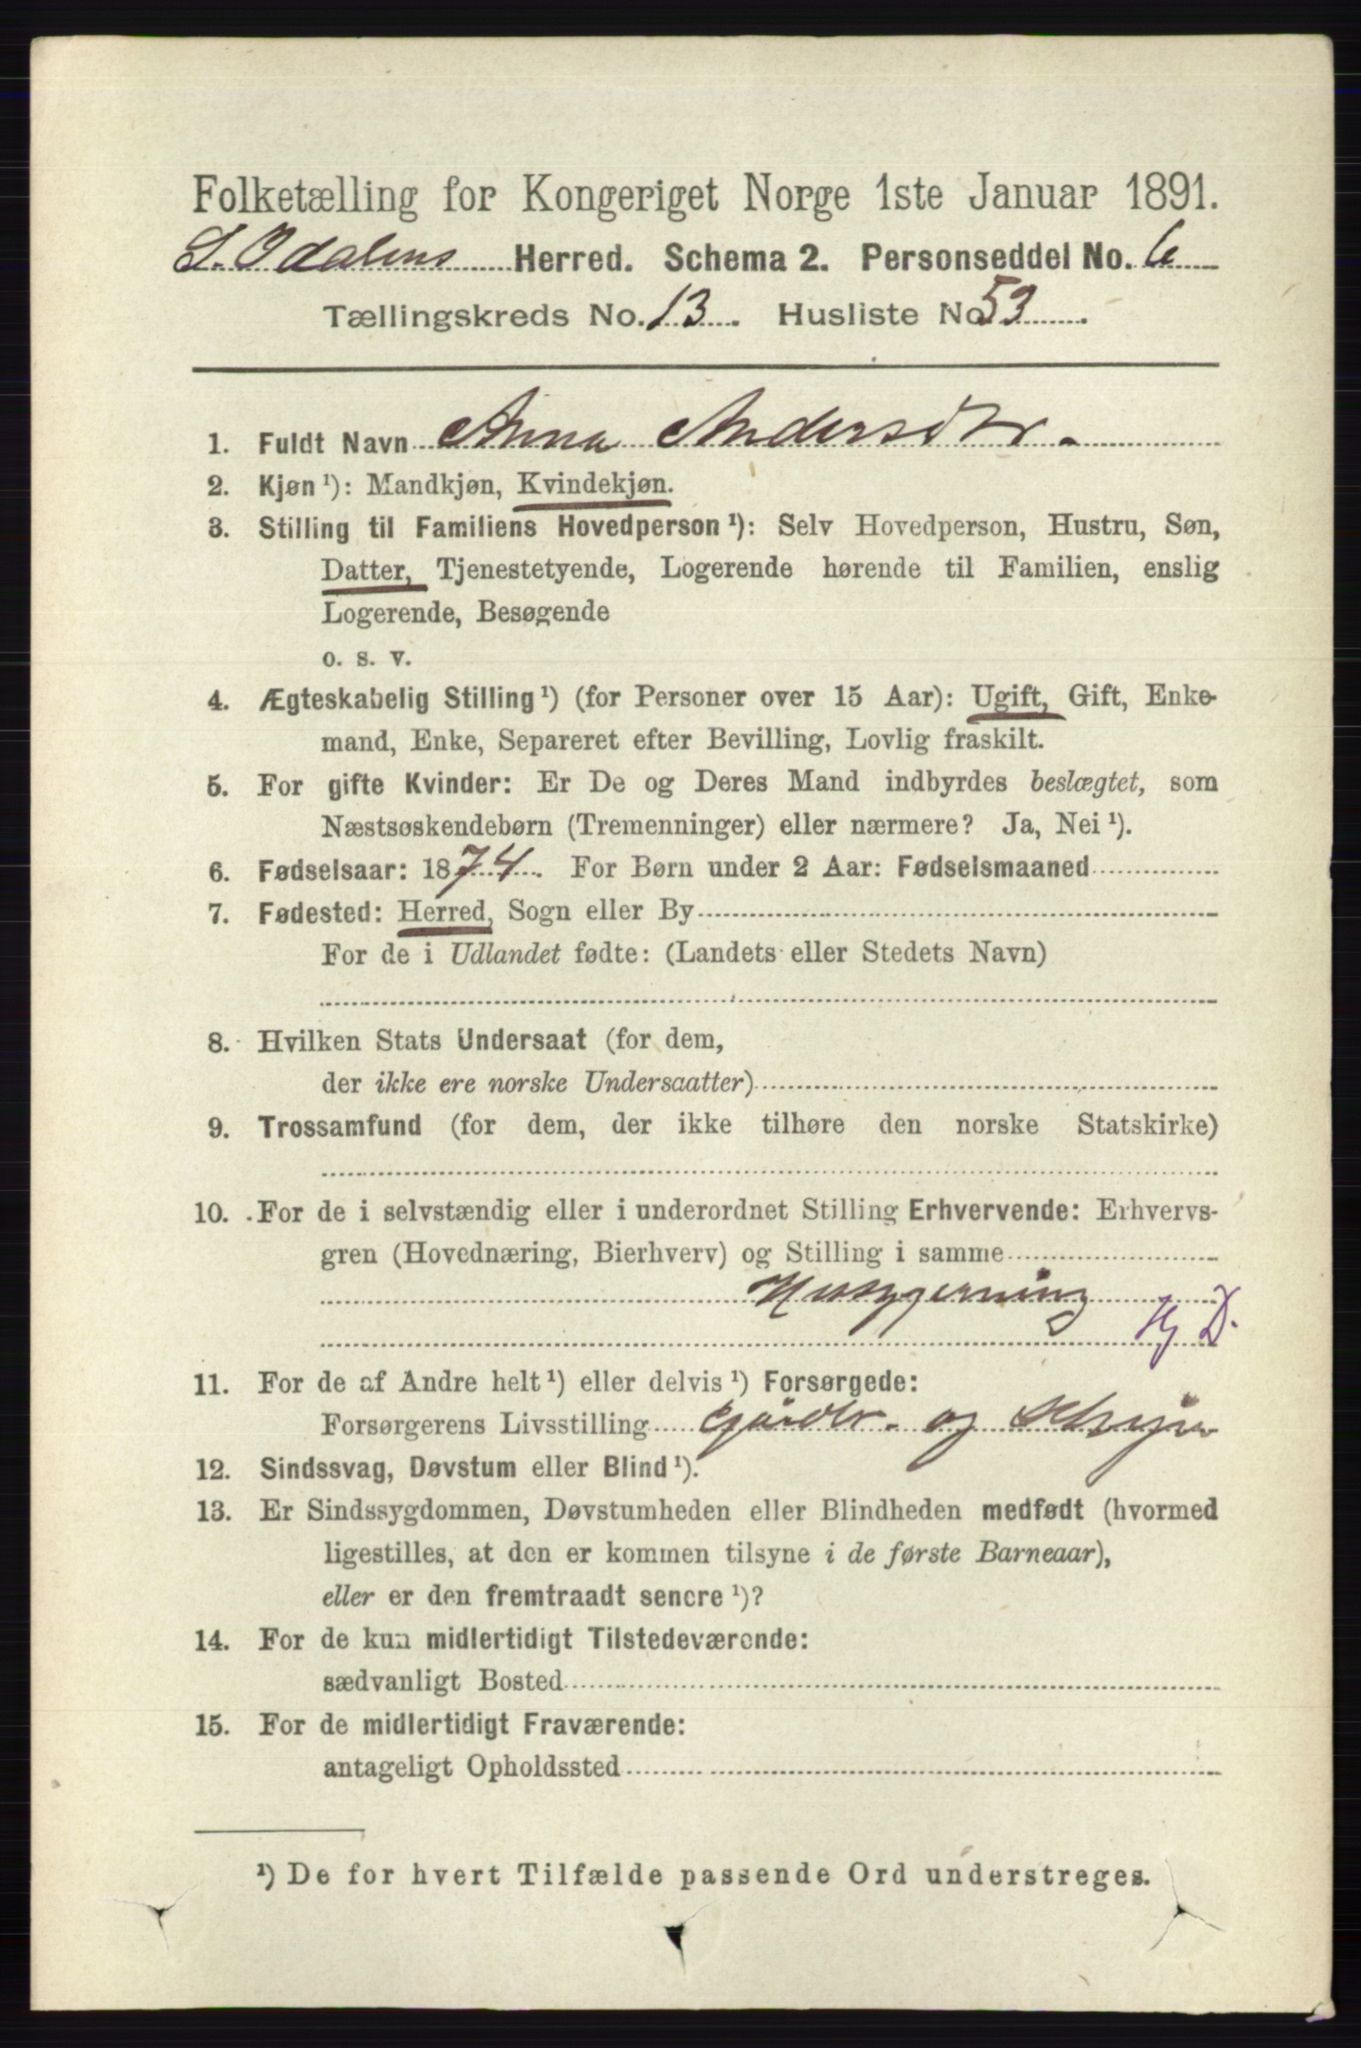 Folketælling for Kongeriget Norge 1ste Januar 1891.
S. Odalens Herred. Schema 2. Personseddel No. 6
Tællingskreds No. 13. Husliste No 53.
1. Fuldt Navn Anna Andersdtr.
2. Kjøn ¹): Mandkjøn, Kvindekjøn.
3. Stilling til Familiens Hovedperson ¹): Selv Hovedperson, Hustru, Søn,
Datter, Tjenestetyende, Logerende hørende til Familien, enslig
Logerende, Besøgende
o. s. v.
4. Ægteskabelig Stilling ¹) (for Personer over 15 Aar): Ugift, Gift, Enke-
mand, Enke, Separeret efter Bevilling, Lovlig fraskilt.
5. For gifte Kvinder: Er De og Deres Mand indbyrdes beslægtet, som
Næstsøskendebørn (Tremenninger) eller nærmere? Ja, Nei ¹).
6. Fødselsaar: 1874. For Børn under 2 Aar: Fødselsmaaned
7. Fødested: Herred, Sogn eller By
For de i Udlandet fødte: (Landets eller Stedets Navn)
8. Hvilken Stats Undersaat (for dem,
der ikke ere norske Undersaatter)
9. Trossamfund (for dem, der ikke tilhøre den norske Statskirke)
10. For de i selvstændig eller i underordnet Stilling Erhvervende: Erhvervs-
gren (Hovednæring, Bierhverv) og Stilling i samme
Husgjerning
Hj D.
11. For de af Andre helt ¹) eller delvis ¹) Forsørgede:
Forsørgerens Livsstilling Gårdbr. og
12. Sindssvag, Døvstum eller Blind ¹).
13. Er Sindssygdommen, Døvstumheden eller Blindheden medfødt (hvormed
ligestilles, at den er kommen tilsyne i de første Barneaar),
eller er den fremtraadt senere ¹)?
14. For de kun midlertidigt Tilstedeværende:
sædvanligt Bosted
15. For de midlertidigt Fraværende:
antageligt Opholdssted
¹) De for hvert Tilfælde passende Ord understreges.